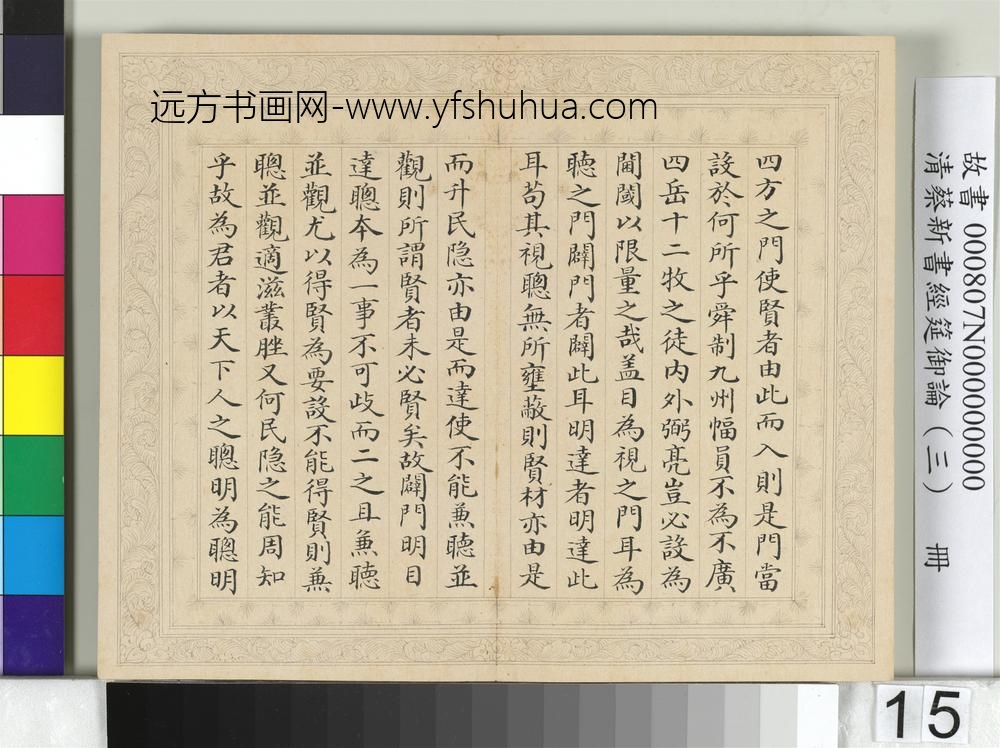 远方书画网-www.yfshuhua.com
四方之門使賢者由此而入則是門當
設於何所乎舜制九州幅員不為不廣
四岳十二牧之徒内外弼亮豈必設為
閫閾以限量之哉盖目為視之門耳為
聴之門闢門者闢此耳明達者明達此
耳苟其視聰無所壅蔽則賢材亦由是
而升民隐亦由是而達使不能兼聴並
觀則所謂賢者未必賢矣故闢門明目
達聰本為一事不可歧而二之且兼聴
並觀尤以得賢為要設不能得賢則兼
聰並觀適滋叢脞又何民隐之能周知
乎故為君者以天下人之聰明為聰明
故書 000807N000000000
清蔡新書經筵御論（三） 冊
15